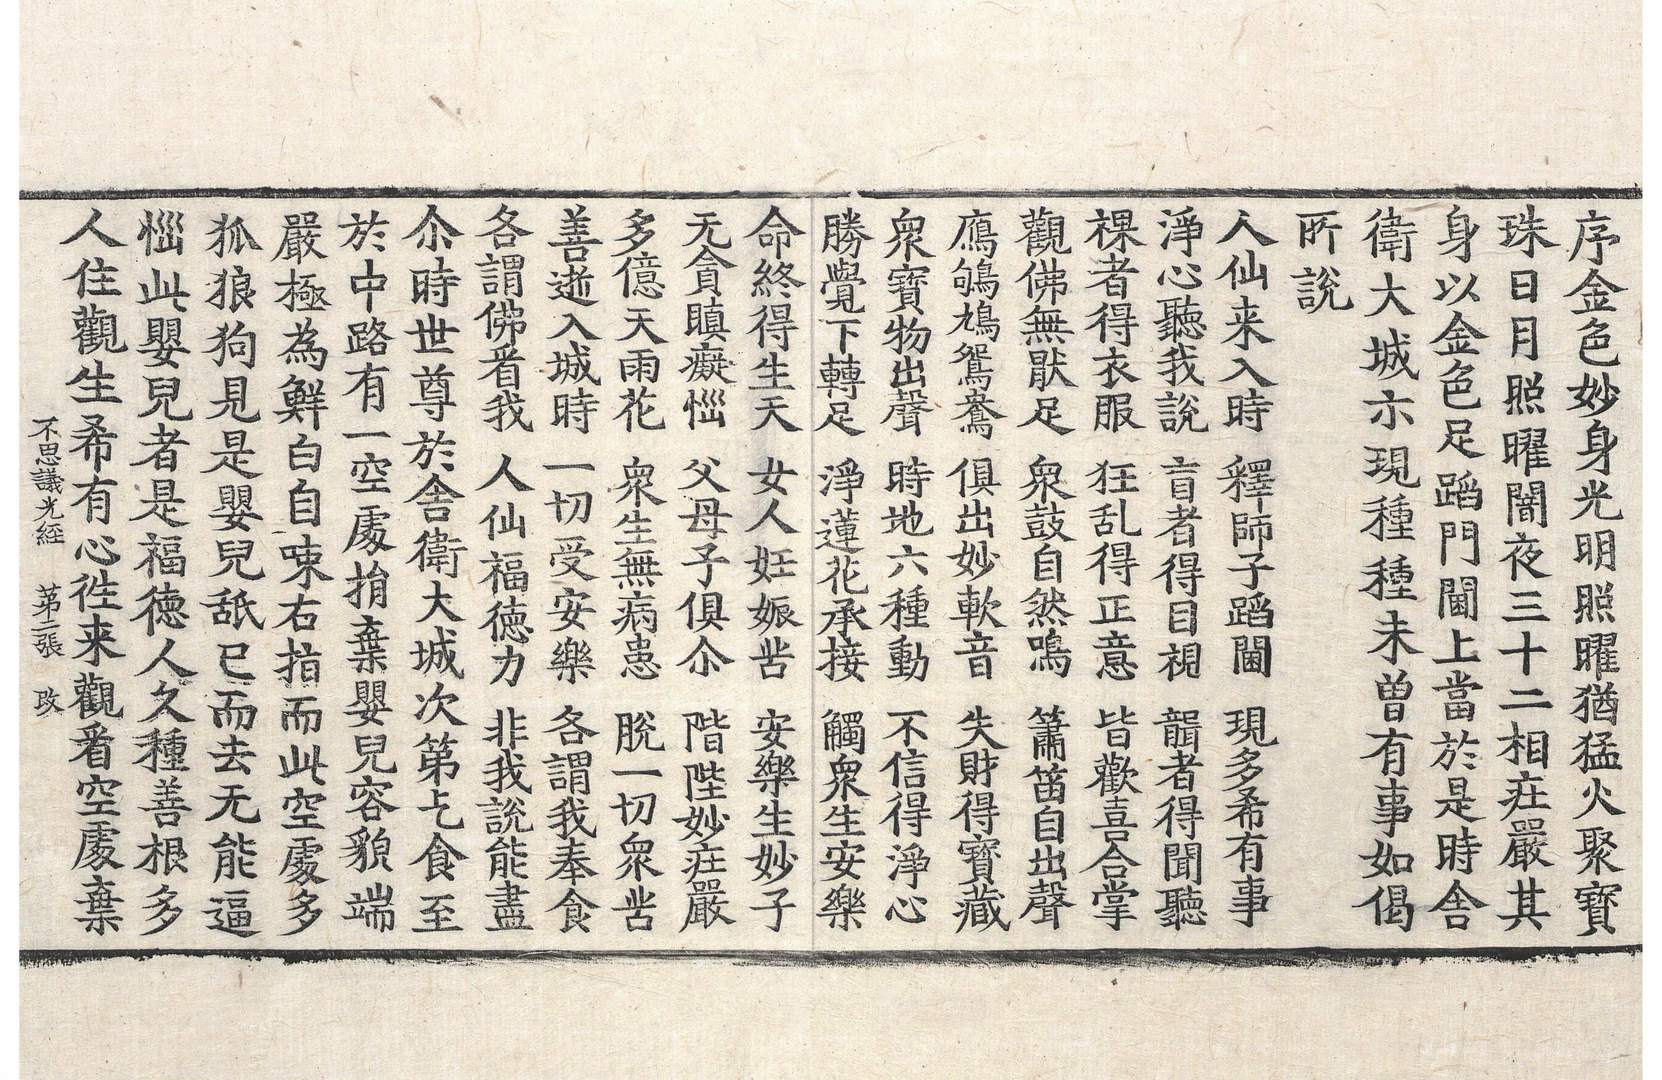 序金色妙身光明照曜猶猛火聚寶
珠日月照曜闇夜三十二相㽵嚴其
身以金色足蹈門閫上當於是時舎
衛大城示現種種未曾有事如偈
所說
人仙来入時 釋師子蹈閫 現多希有事
淨心聽我說 盲者得目視 聾者得聞聽
裸者得衣服 狂乱得正意 皆歡喜合掌
觀佛無猒足 衆鼓自然鳴 簫笛自出聲
鴈鵠鳩鴛鴦 俱出妙軟音 失財得寶藏
衆寶物出聲 時地六種動 不信得淨心
勝覺下轉足 淨蓮花承接 觸衆生安樂
命終得生天 女人妊娠苦 安樂生妙子
无貪瞋癡惱 父母子俱尒 階陛妙㽵嚴
多億天雨花 衆生無病患 脫一切衆苦
善逝入城時 一切受安樂 各謂我奉食
各謂佛看我 人仙福德力 非我說能盡
尒時世尊於舎衛大城次第乞食至
於中路有一空處捐棄嬰兒容貌端
嚴極為鮮白自𠲿右指而此空處多
狐狼狗見是嬰兒舐已而去无能逼
惱此嬰兒者是福德人久種善根多
人住觀生希有心徃来觀看空處棄
不思議光經 第二張 改